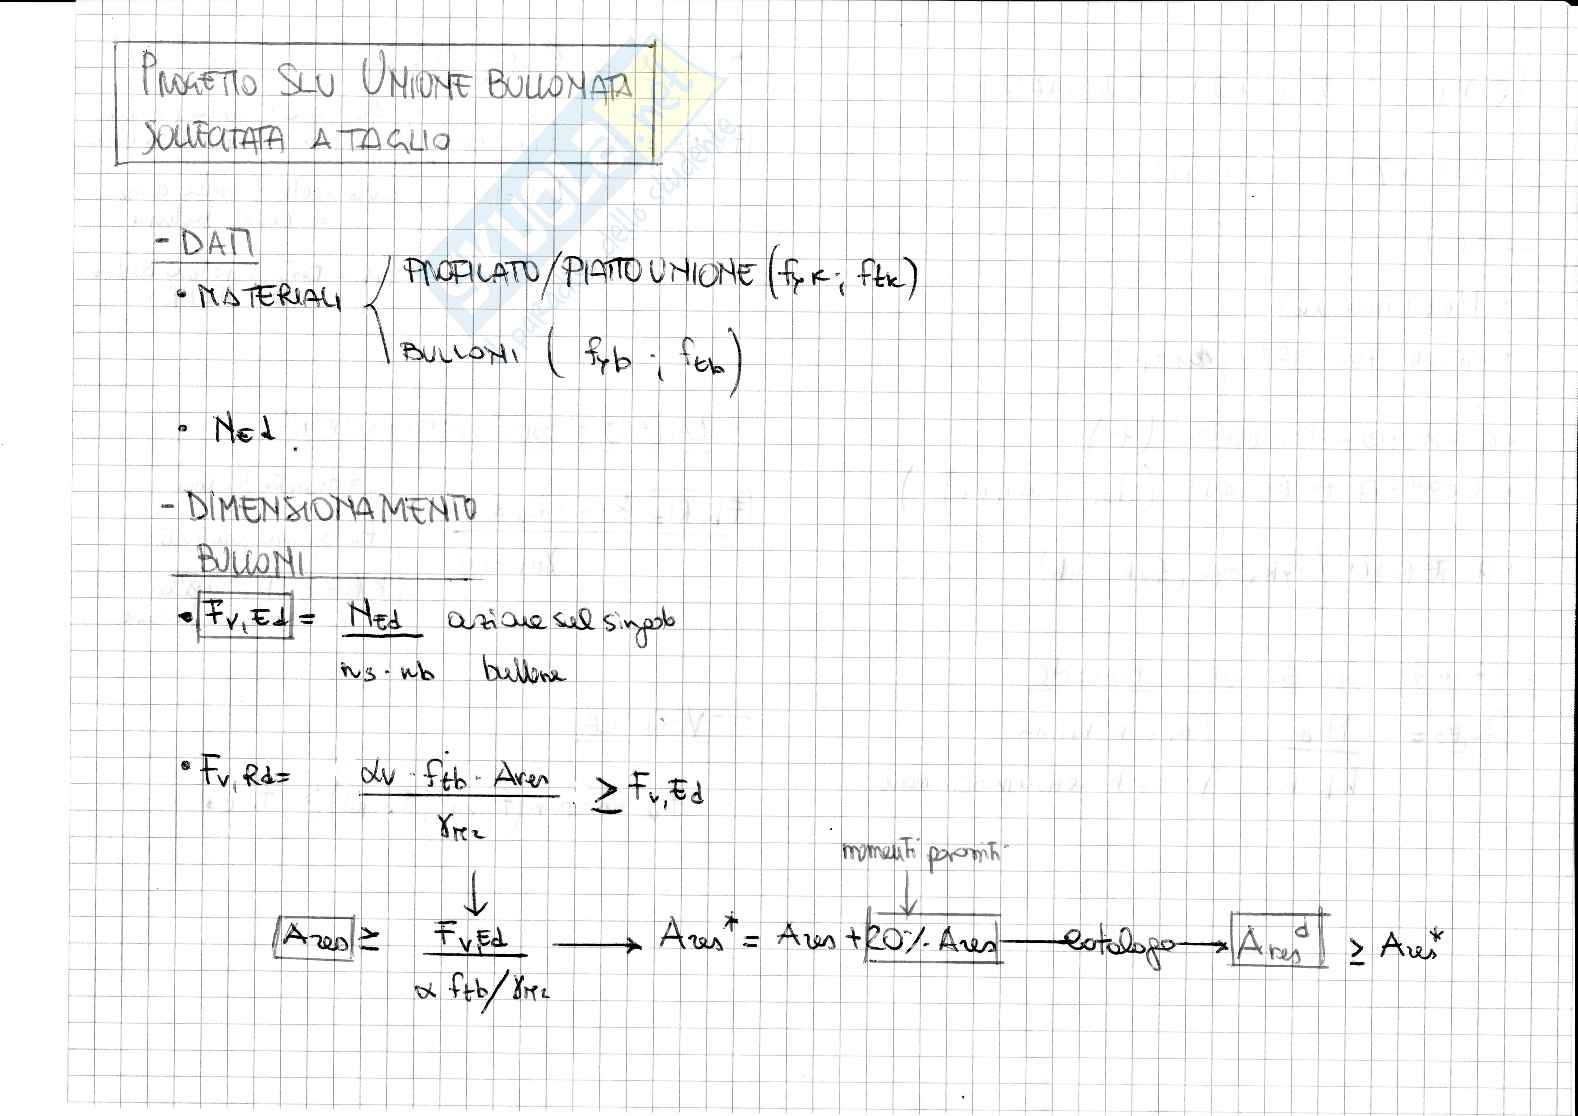 PROGETTO SLU UNIONE BULLONATA
SOLLECITATA A TAGLIO
- DATI
• MATERIALI
PROFILATO/PIATTO UNIONE (fyk ; ftk)
BULLONI ( fyb ; ftb )
• NEd
- DIMENSIONAMENTO
BULLONI
• Fv,Ed = NEd / ns · nb azione sul singolo
bullone
• Fv,Rd = αv · ftb · Ares / γM2 ≥ Fv,Ed
momenti parassiti
Ares ≥ Fv,Ed / α ftb/γM2 → Ares* = Ares + 20% Ares — catalogo → Ares^d ≥ Ares*
SKUOLA.net
paradiso dello studente